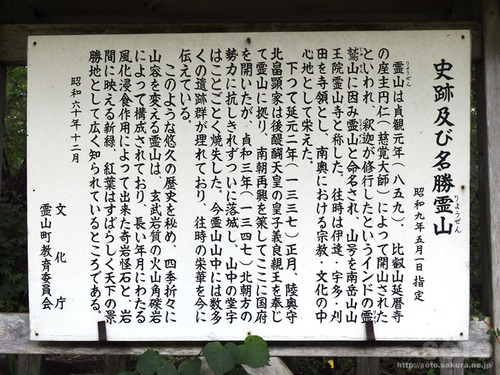 史跡及び名勝霊山
りょうぜん
昭和九年五月一日指定
りょうぜん
霊山は貞観元年（八五九）、比叡山延暦寺
の座主円仁（慈覚大師）によって開山された
といわれ、釈迦が修行したというインドの霊
鷲山に因み霊山と命名され、山号を南岳山山
王院霊山寺と称した。往時は伊達・宇多・刈
田を寺領とし、南奥における宗教、文化の中
心地として栄えた。
下つて延元二年（一三三七）正月、陸奥守
北畠顕家は後醍醐天皇の皇子義良親王を奉じ
て霊山に拠り、南朝再興を策してここに国府
を開いたが、貞和三年（一三四七）北朝方の
勢力に抗しきれずついに落城し、山中の堂宇
はことごとく焼失した。今霊山山中には数多
くの遺跡群が埋れており、往時の栄華を今に
伝えている。
このような悠久の歴史を秘め、四季折々に
山容を変える霊山は、玄武岩質の火山角礫岩
によって構成されており、長い年月にわたる
風化浸食作用によって出来た奇岩怪石と、岩
間に映える新緑、紅葉はすばらしく天下の景
勝地として広く知られているところである。
昭和六十年十二月
文化庁
霊山町教育委員会
http://soto.sakura.ne.jp